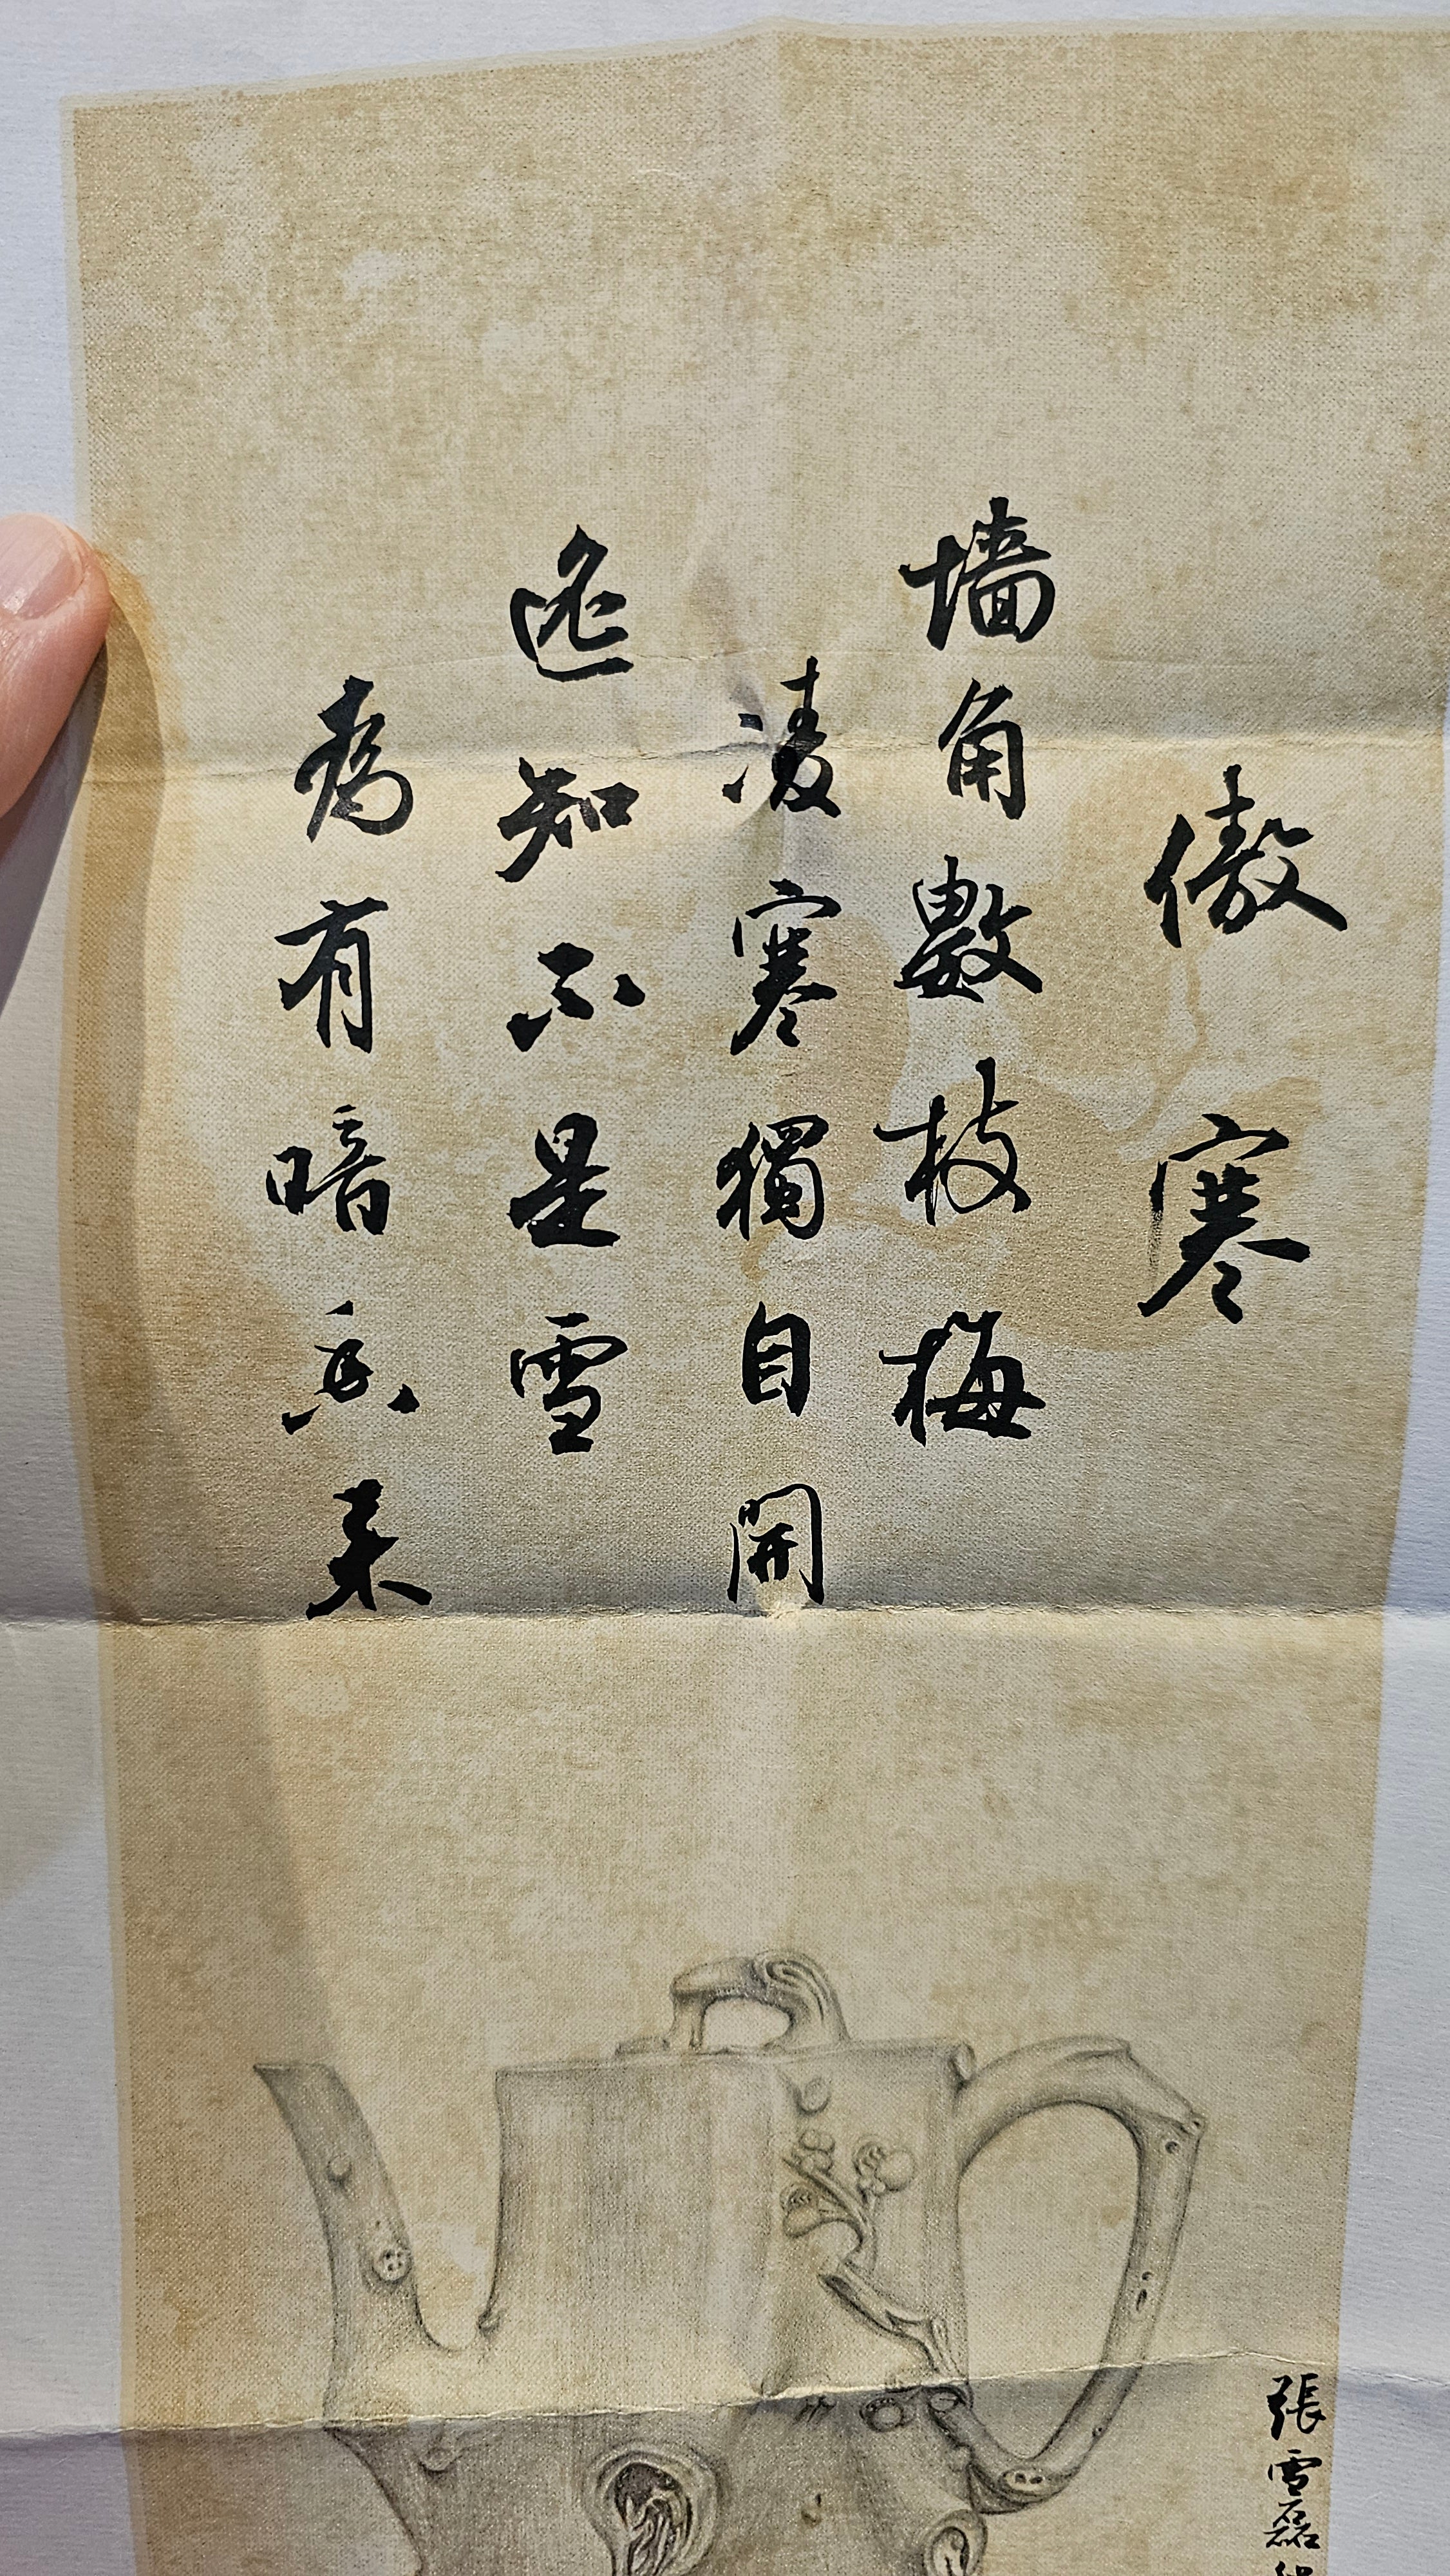 傲寒
墙角數枝梅
凌寒獨自開
遥知不是雪
為有暗香来
張雪磊